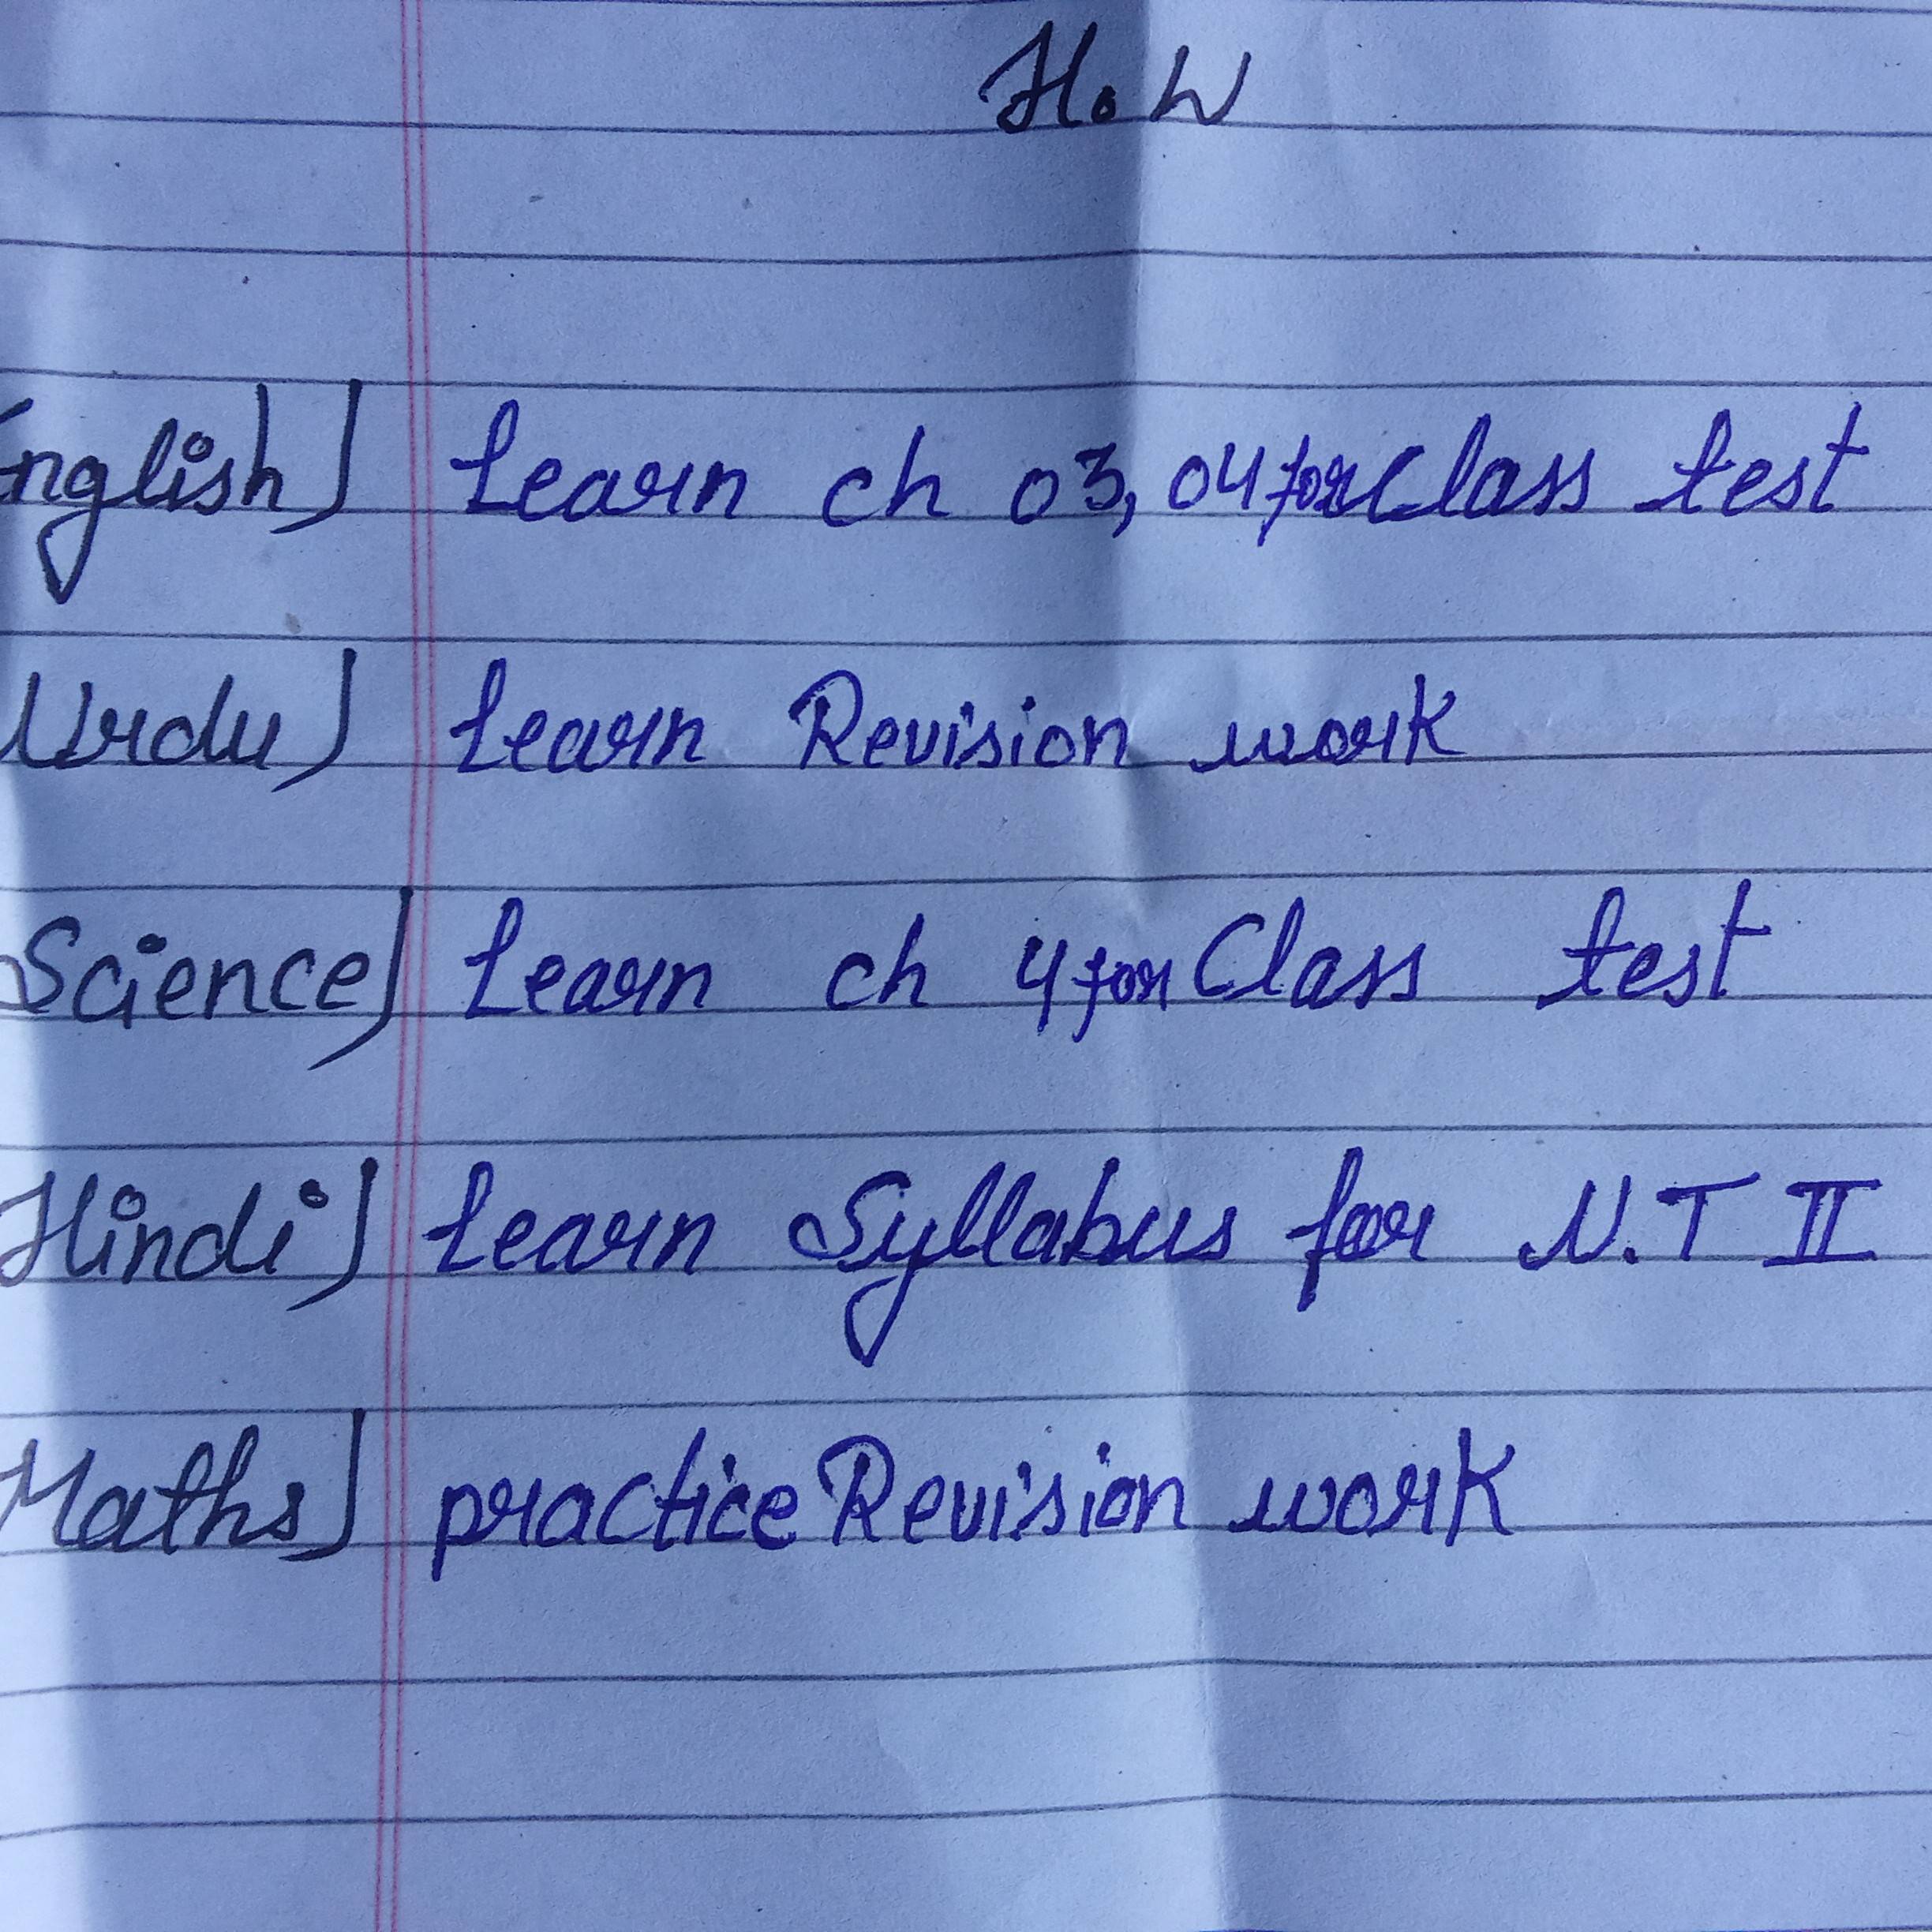 H.W
English) Learn ch 03, 04 for Class test
Urdu) Learn Revision work
Science) Learn ch 4 for Class test
Hindi) Learn Syllabus for N.T II
Maths) practice Revision work